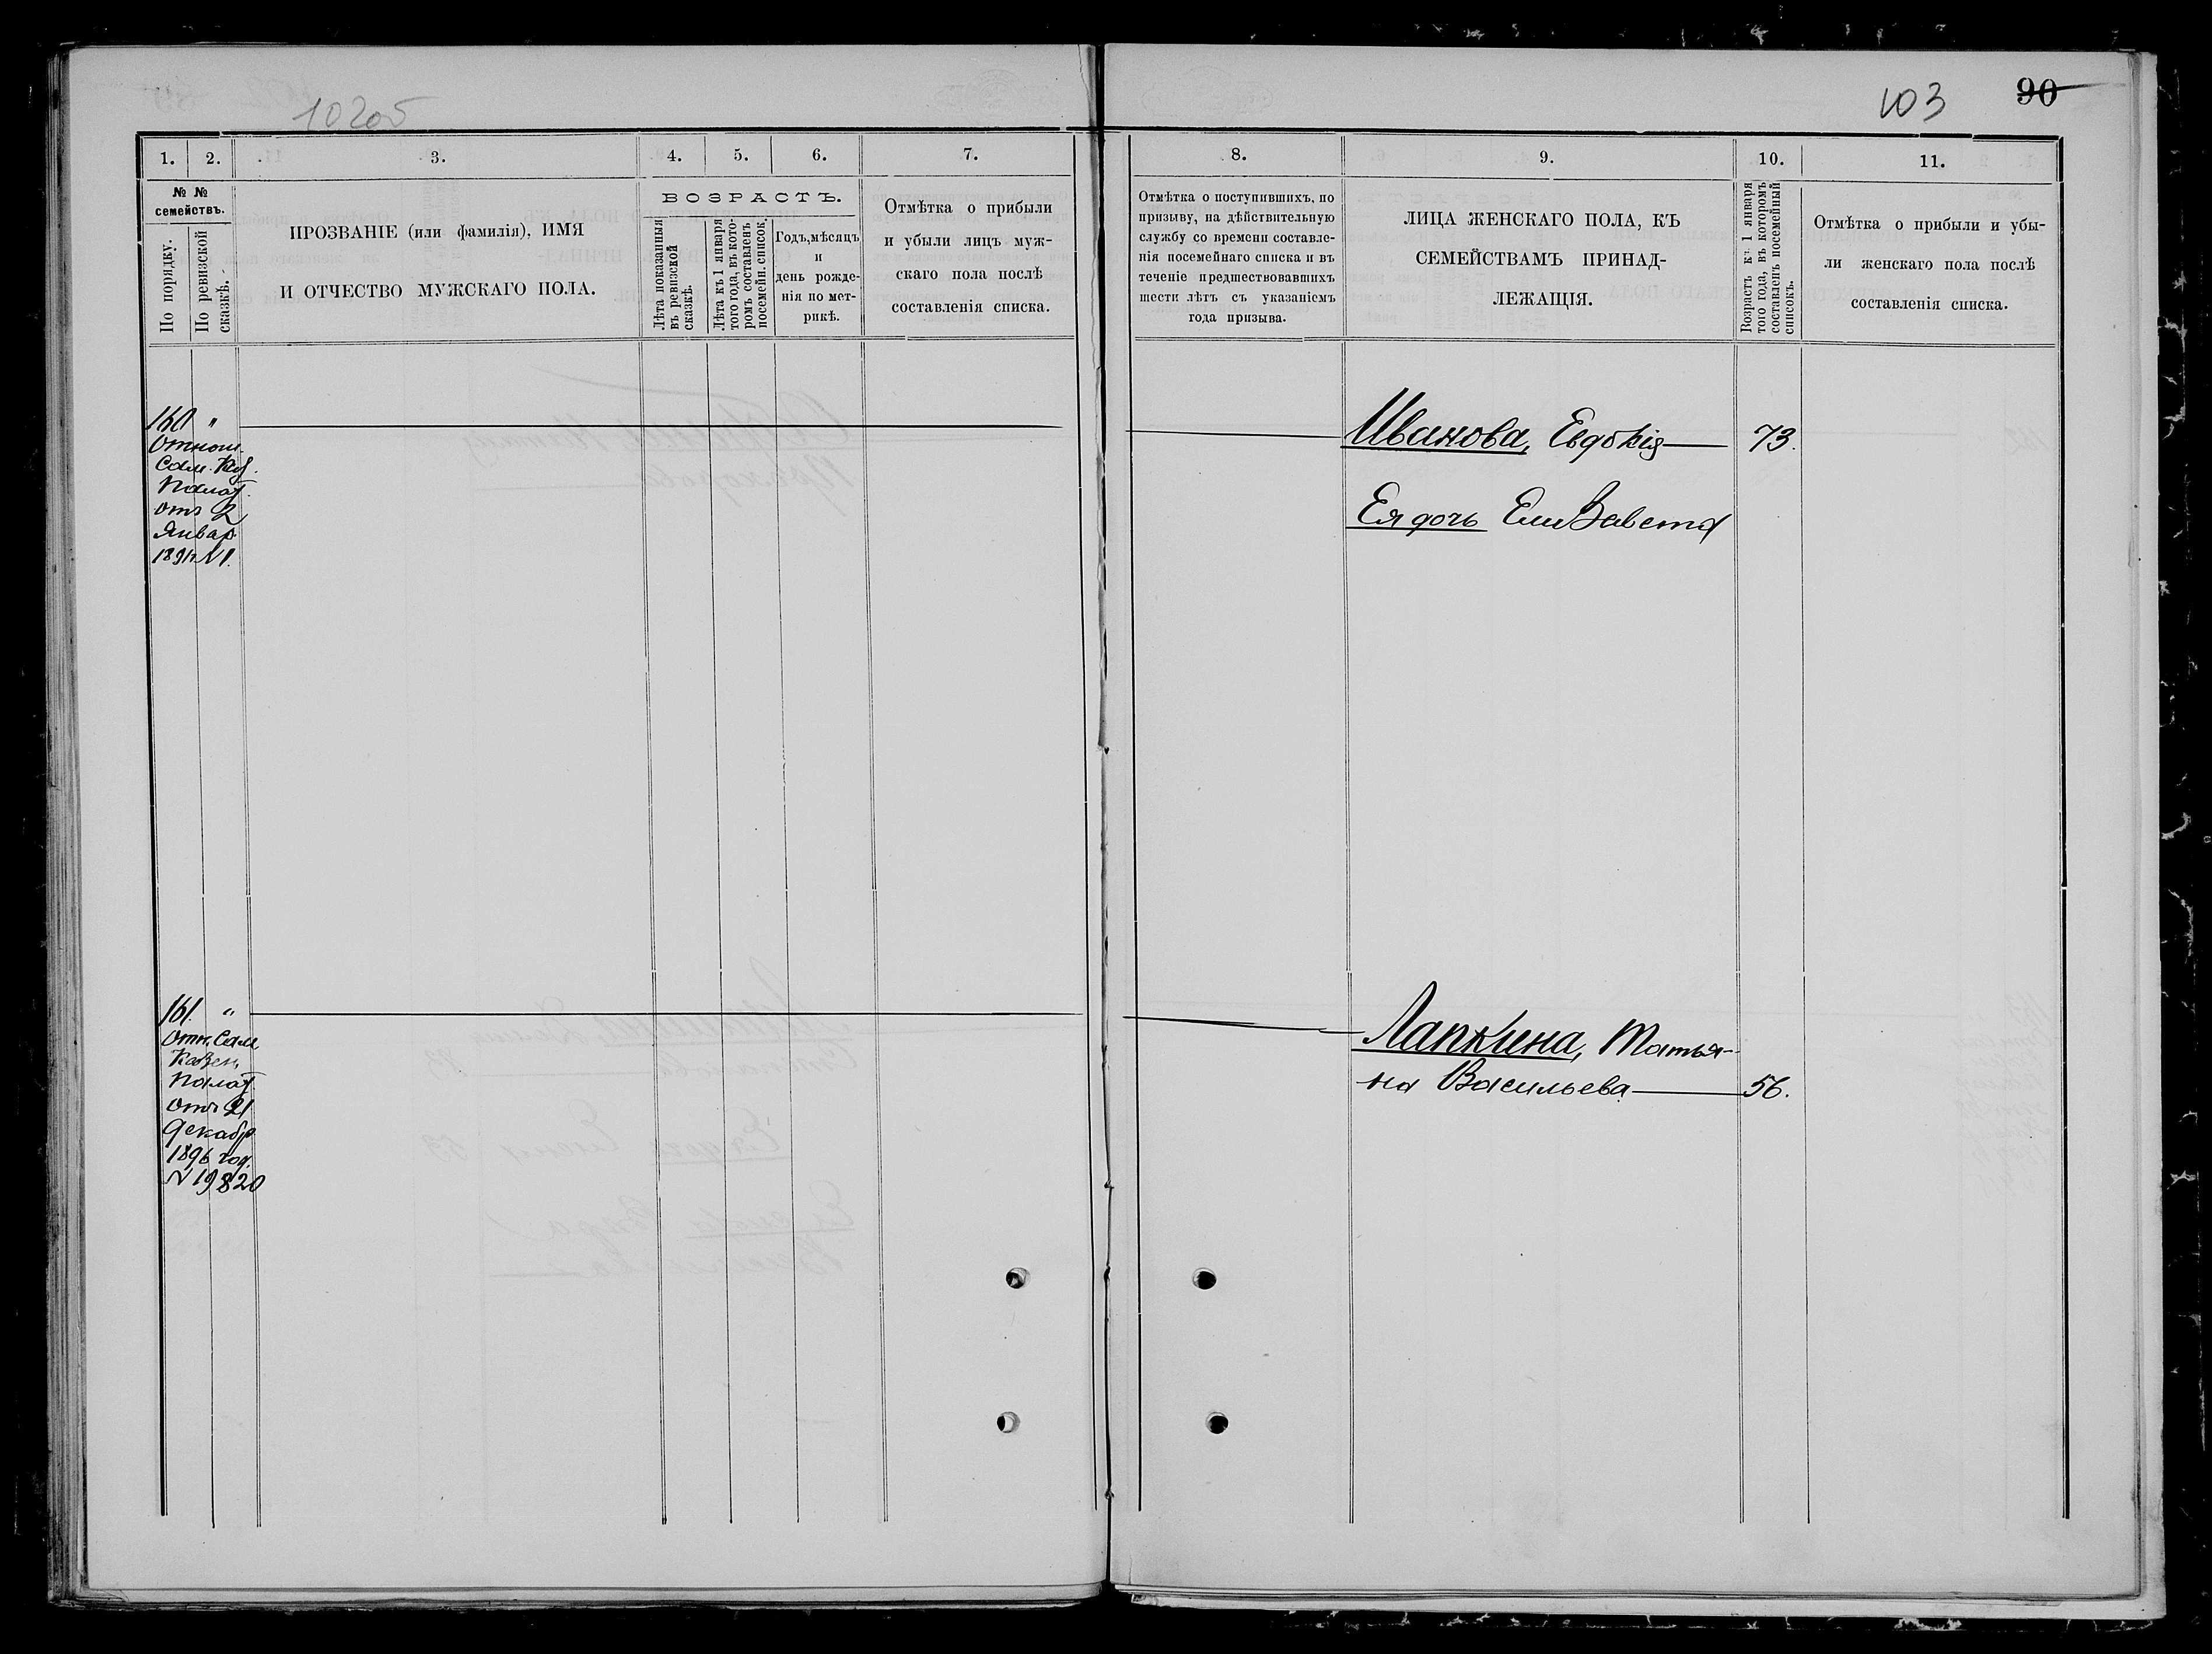 10205
1.
2.
3.
4.
5.
6.
7.
№ №
семействъ.
По порядку.
По ревизской
сказкѣ.
ПРОЗВАНІЕ (или фамилія), ИМЯ
И ОТЧЕСТВО МУЖСКАГО ПОЛА.
ВОЗРАСТЪ.
Лѣта показанныя
въ ревизской
сказкѣ.
Лѣта къ 1 января
того года, въ кото-
ромъ составленъ
посемейн. список.
Годъ, мѣсяцъ
и
день рожде-
нія по мет-
рикѣ.
Отмѣтка о прибыли
и убыли лицъ муж-
скаго пола послѣ
составленія списка.
160 "
Отнош.
Сам. Каз.
Палат.
отъ 2
Январ.
189 г. N 1.
161. "
Отн. Сам
Казен.
Палат.
отъ 21
Декабр
1896 год.
N 19820
103
90
8.
9.
10.
11.
Отмѣтка о поступившихъ, по
призыву, на дѣйствительную
службу со времени составле-
нія посемейнаго списка и въ
теченіе предшествовавшихъ
шести лѣтъ съ указаніемъ
года призыва.
ЛИЦА ЖЕНСКАГО ПОЛА, КЪ
СЕМЕЙСТВАМЪ ПРИНАД-
ЛЕЖАЩІЯ.
Возрастъ къ 1 января
того года, въ которомъ
составленъ посемейный
списокъ.
Отмѣтка о прибыли и убы-
ли женскаго пола послѣ
составленія списка.
Иванова, Евдокія 73.
Ея дочь Елизавета
Лапкина, Татья-
на Васильева 56.